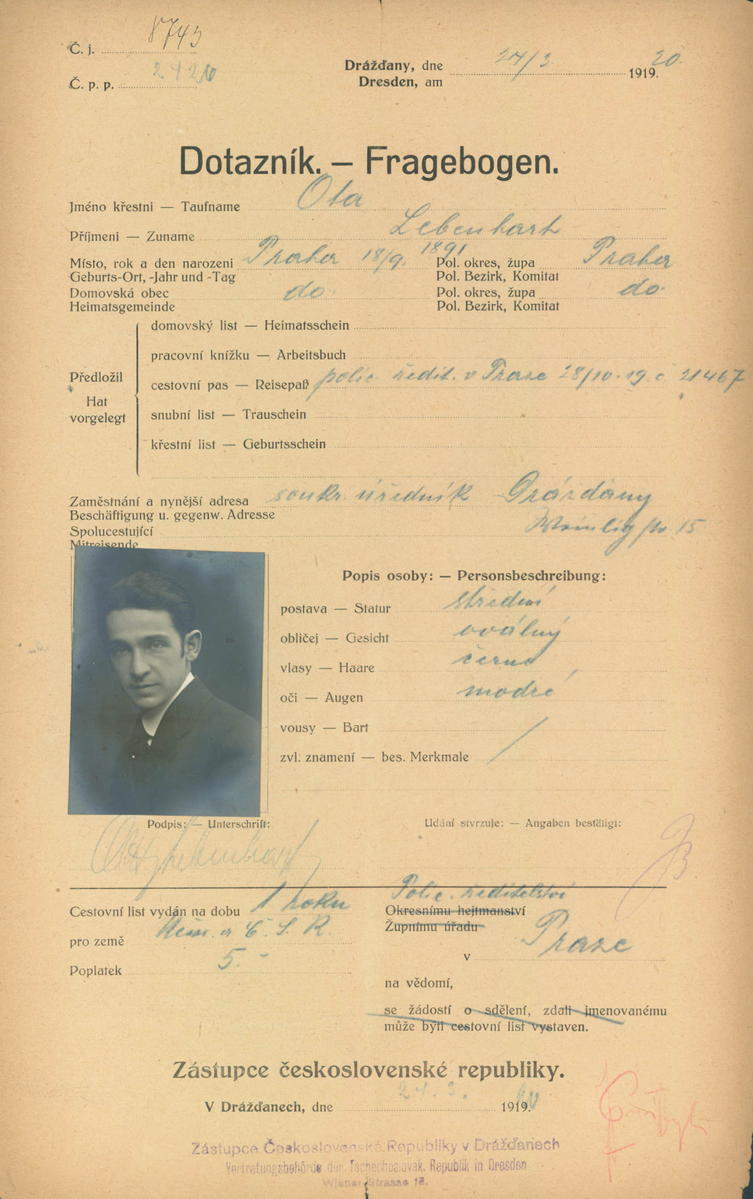 Č. j. 8743
Č. p. p. 2426
Drážďany, dne
Dresden, am 24/3 1919. 20.
Dotazník. — Fragebogen.
Jméno křestni — Taufname Ota
Příjmeni — Zuname Lebenhart
Místo, rok a den narozeni Praha 18/9. 1891 Pol. okres, župa Praha
Geburts-Ort, -Jahr und -Tag Pol. Bezirk, Komitat
Domovská obec do Pol. okres, župa do
Heimatsgemeinde Pol. Bezirk, Komitat
Předložil
Hat
vorgelegt
domovský list — Heimatsschein
pracovní knížku — Arbeitsbuch
cestovní pas — Reisepaß polic. ředit. v Praze 28/10.19 č 21467
snubní list — Trauschein
křestní list — Geburtsschein
Zaměstnání a nynější adresa soukr. úředník Drážďany
Beschäftigung u. gegenw. Adresse
Spolucestující 15
Mitreisende
Popis osoby: — Personsbeschreibung:
postava — Statur střední
obličej — Gesicht oválný
vlasy — Haare černé
oči — Augen modré
vousy — Bart
zvl. znamení — bes. Merkmale /
Podpis: — Unterschrift:
Udání stvrzuje: — Angaben bestätigt:
Cestovní list vydán na dobu 1 roku
pro země Něm. a Č. S. R.
Poplatek 5.-
Polic. ředitelství
Okresnímu hejtmanství
Župnímu úřadu
v Praze
na vědomí,
se žádostí o sdělení, zdali jmenovanému
může býti cestovní list vystaven.
Zástupce československé republiky.
V Drážďanech, dne 24.3. 1919.
Zástupce Československé Republiky v Drážďanech
Vertretungsbehörde der Tschechoslovak. Republik in Dresden
Wiener Strasse